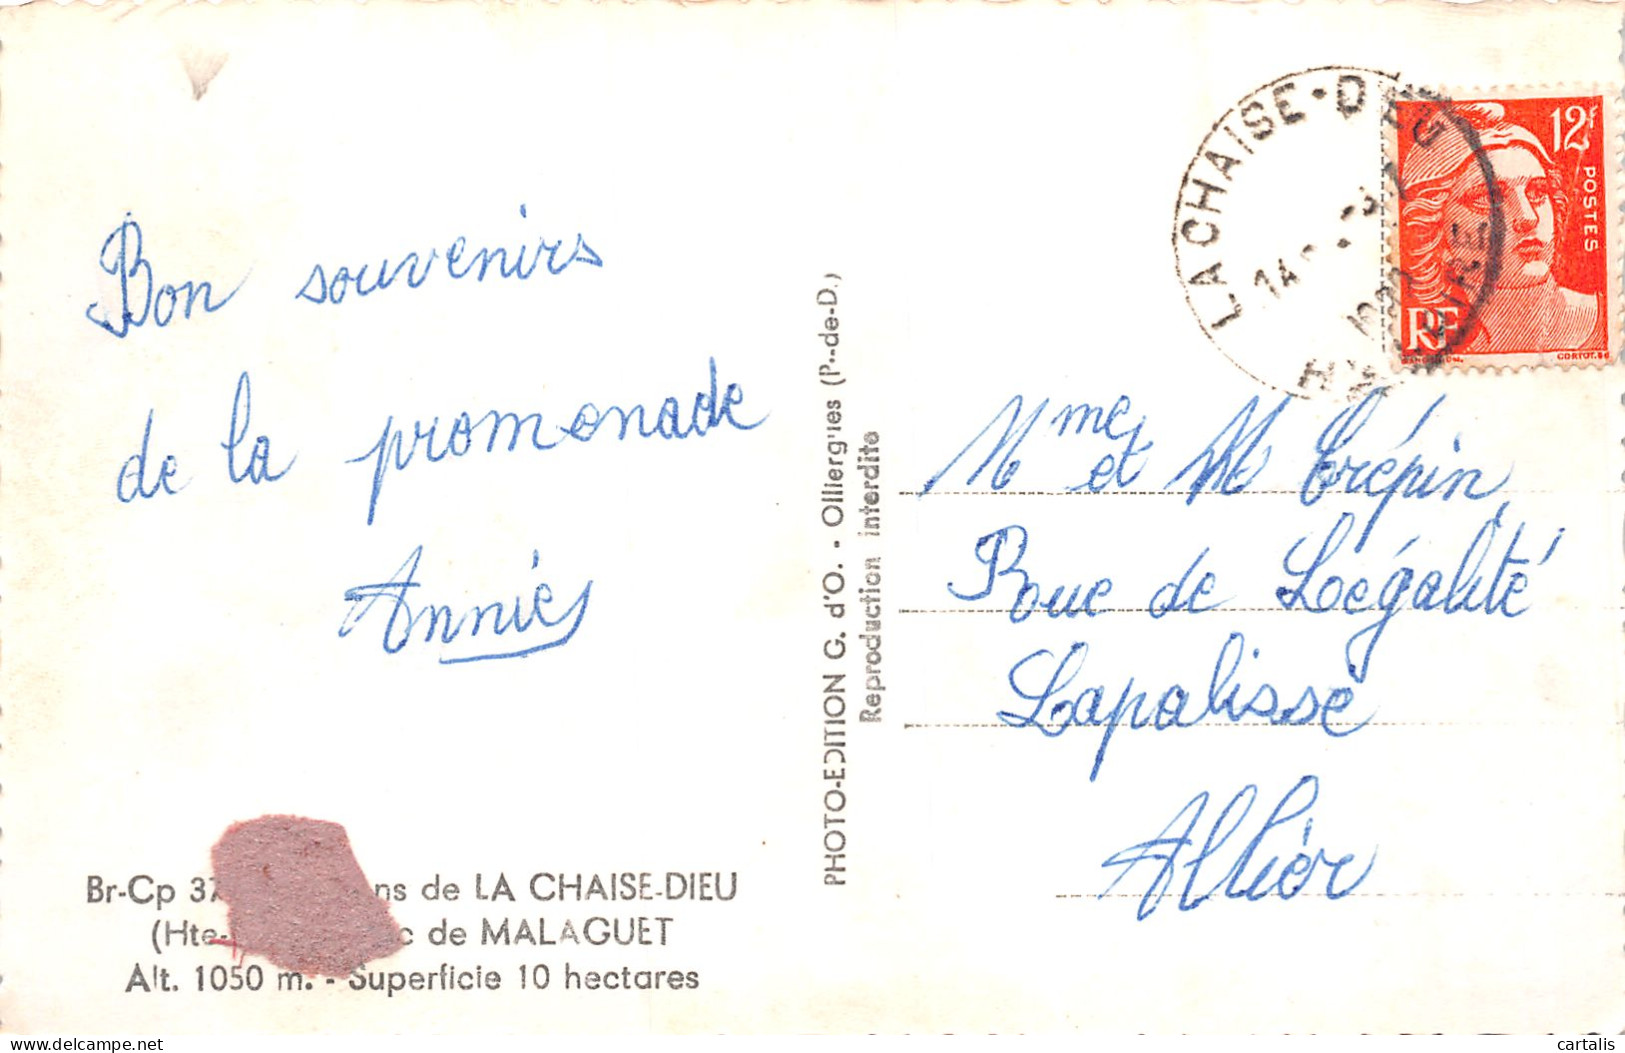 Bon souvenirs
de la promenade
Annie
Br-Cp 37 ns de LA CHAISE-DIEU
(Hte- c de MALAGUET
Alt. 1050 m. - Superficie 10 hectares
PHOTO-EDITION G. d'O. - Olliergues (P.-de-D.)
Reproduction interdite
LA CHAISE-DIEU
12F
POSTES
RF
Mme et M Crépin
Rue de Légalité
Lapalisse
Allier
cartalis